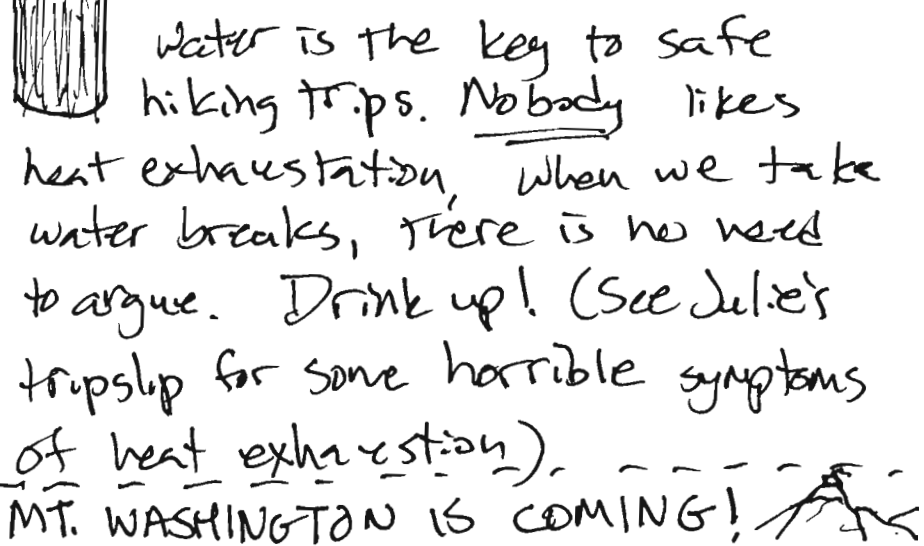 Water is the key to safe
hiking trips. Nobody likes
heat exhaustation, when we take
water breaks, there is no need
to argue. Drink up! (See Julie's
tripslip for some horrible symptoms
of heat exhaustion)
MT. WASHINGTON IS COMING!